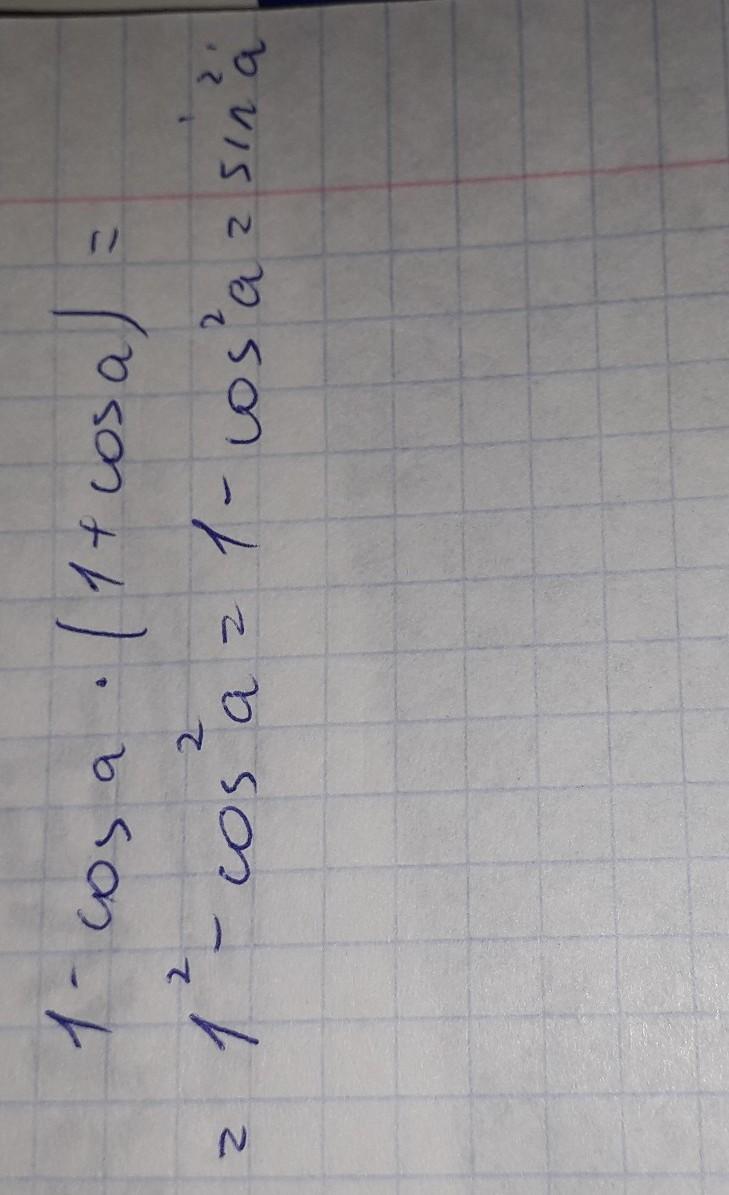 1 - cos a · (1 + cos a) =
= 1² - cos² a = 1 - cos² a = sin² a